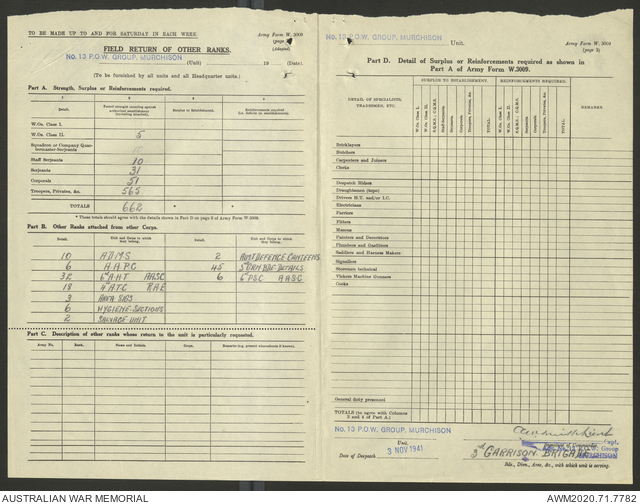 TO BE MADE UP TO AND FOR SATURDAY IN EACH WEEK.
Army Form W. 3009
(Adapted)
FIELD RETURN OF OTHER RANKS.
No. 13 P.O.W. GROUP, MURCHISON
(Unit) 19 (Date)
(To be furnished by all units and all Headquarter units.)
Part A. Strength, Surplus or Reinforcements required.
1 2 3 4
Detail. Posted strength counting against authorized establishment (including attached). Surplus to Establishment. Reinforcements required (i.e. deficits on establishment).
W.Os. Class I.
W.Os. Class II. 5
Squadron or Company Quartermaster-Serjeants 10
Staff Serjeants 10
Serjeants 31
Corporals 51
Troopers, Privates, &c. 565
TOTALS 662 * *
* These totals should agree with the details shown in Part D on page 3 of Army Form W.3009.
Part B. Other Ranks attached from other Corps.
Detail. Unit and Corps to which they belong. Detail. Unit and Corps to which they belong.
10 ADMS 2 AUST DEFENCE CANTEENS
6 A.A.P.C. 45 BDE DETAILS
32 6th A.H.T AASC 6 6th PSC AASC
18 4th A.T.C R.A.E
3 AREA SIGS
6 HYGIENE SECTIONS
2 SALVAGE UNIT
Part C. Description of other ranks whose return to the unit is particularly requested.
Army No. Rank. Name and Initials. Corps. Remarks (e.g. present whereabouts if known).
No. 13 P.O.W. GROUP, MURCHISON
Unit.
Army Form W. 3009
(page 3)
Part D. Detail of Surplus or Reinforcements required as shown in
Part A of Army Form W.3009.
DETAIL OF SPECIALISTS, TRADESMEN, ETC.
SURPLUS TO ESTABLISHMENT. REINFORCEMENTS REQUIRED.
W.Os. Class I. W.Os. Class II. S.Q.M.S.; C.Q.M.S. Staff-Serjeants Serjeants Corporals Troopers, Privates, &c. TOTAL W.Os. Class I. W.Os. Class II. S.Q.M.S.; C.Q.M.S. Staff-Serjeants Serjeants Corporals Troopers, Privates, &c. TOTAL
REMARKS
Bricklayers
Butchers
Carpenters and Joiners
Clerks
Despatch Riders
Draughtsmen (topo)
Drivers H.T. and/or I.C.
Electricians
Farriers
Fitters
Masons
Painters and Decorators
Plumbers and Gasfitters
Saddlers and Harness Makers
Signallers
Storemen technical
Vickers Machine Gunners
Cooks
General duty personnel
TOTALS (to agree with Columns 3 and 4 of Part A.)
No. 13 P.O.W. GROUP, MURCHISON
Capt.
Date of Despatch 3 NOV 1941
3rd GARRISON BRIGADE
Bde., Divn., Area, &c., with which unit is serving.
AUSTRALIAN WAR MEMORIAL
AWM2020.71.7782